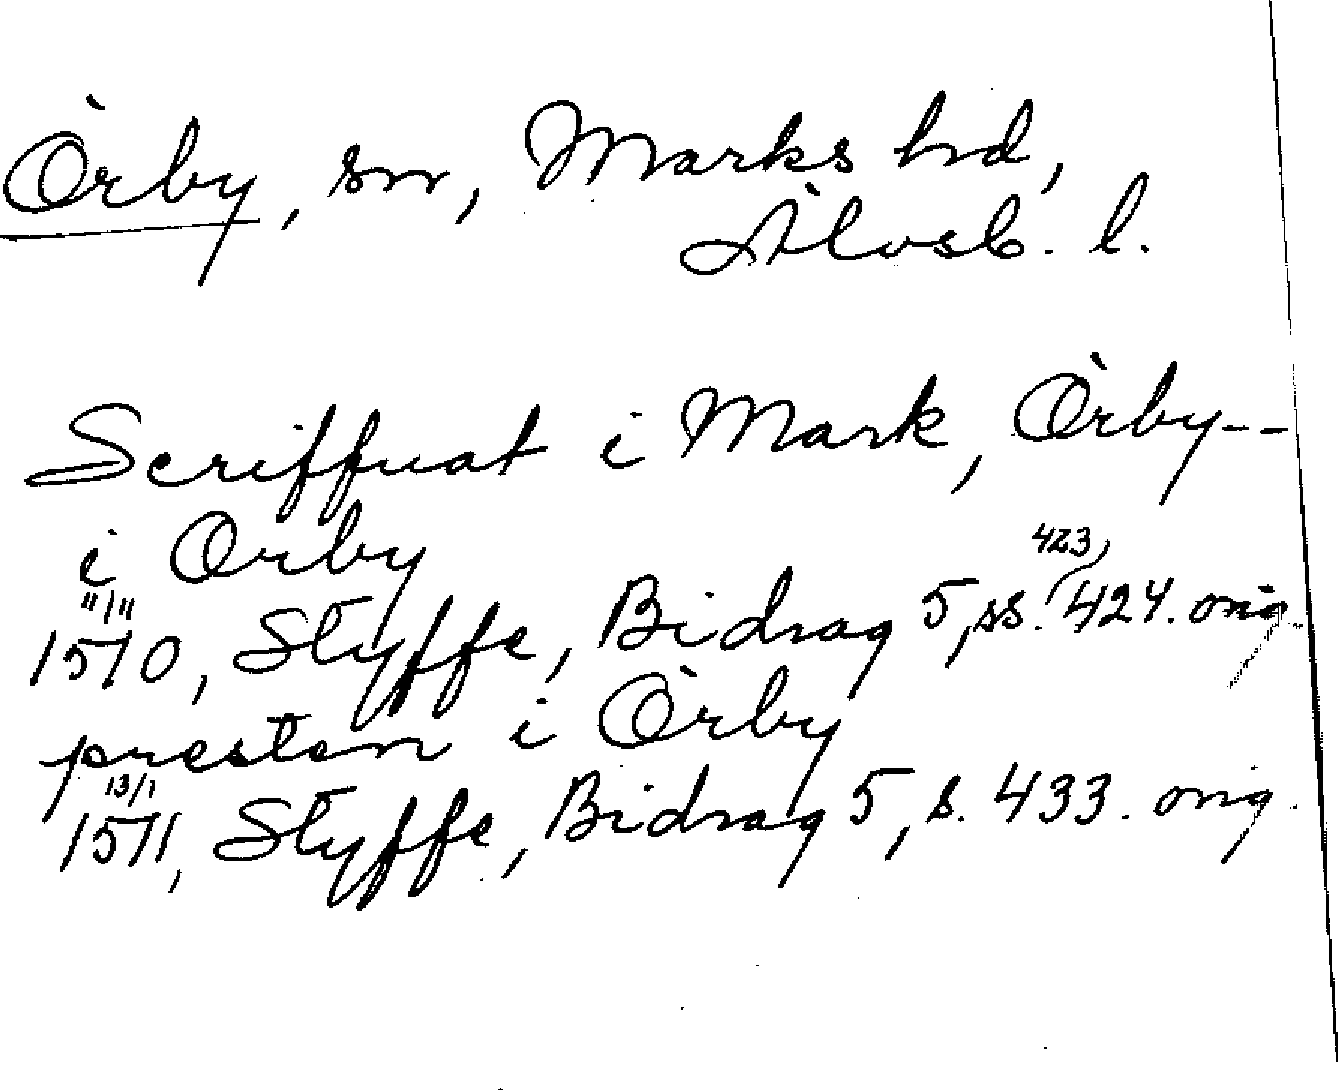 Örby, sn, Marks hd,
Älvsb. l.
Scriffuat i Mark, Örby--
i Orby
11/11
1510, Styffe, Bidrag 5, ss. 423, 424. orig.
presten i Örby
13/1
1511, Styffe, Bidrag 5, s. 433. orig.